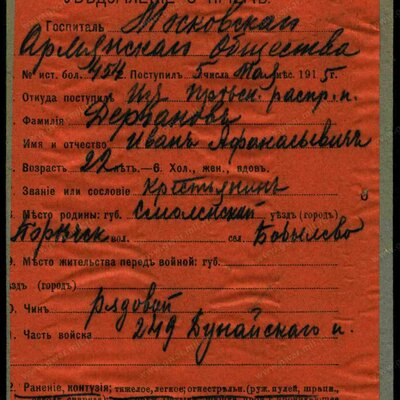 УВѢДОМЛЕНІЕ О ПРІЕМѢ.
Госпиталь Московскаго
Армянскаго Общества
№ ист. бол. 454 Поступилъ 5 числа Мая мѣс. 1915 г.
Откуда поступилъ Изъ распр. п.
Фамилія
Имя и отчество Иванъ Афанасьевичъ
Возрастъ 22 лѣтъ.—6. Хол., жен., вдов.
Званіе или сословіе крестьянинъ
Мѣсто родины: губ. Смоленской уѣздъ (городъ)
Порѣчск вол. сел. Бобылево
9. Мѣсто жительства передъ войной: губ.
ѣздъ (городъ)
0. Чинъ рядовой
1. Часть войска 249 Дунайскаго п.
2. Раненіе, контузія; тяжелое, легкое; огнестрѣльн. (руж. пулей, шрапн.,